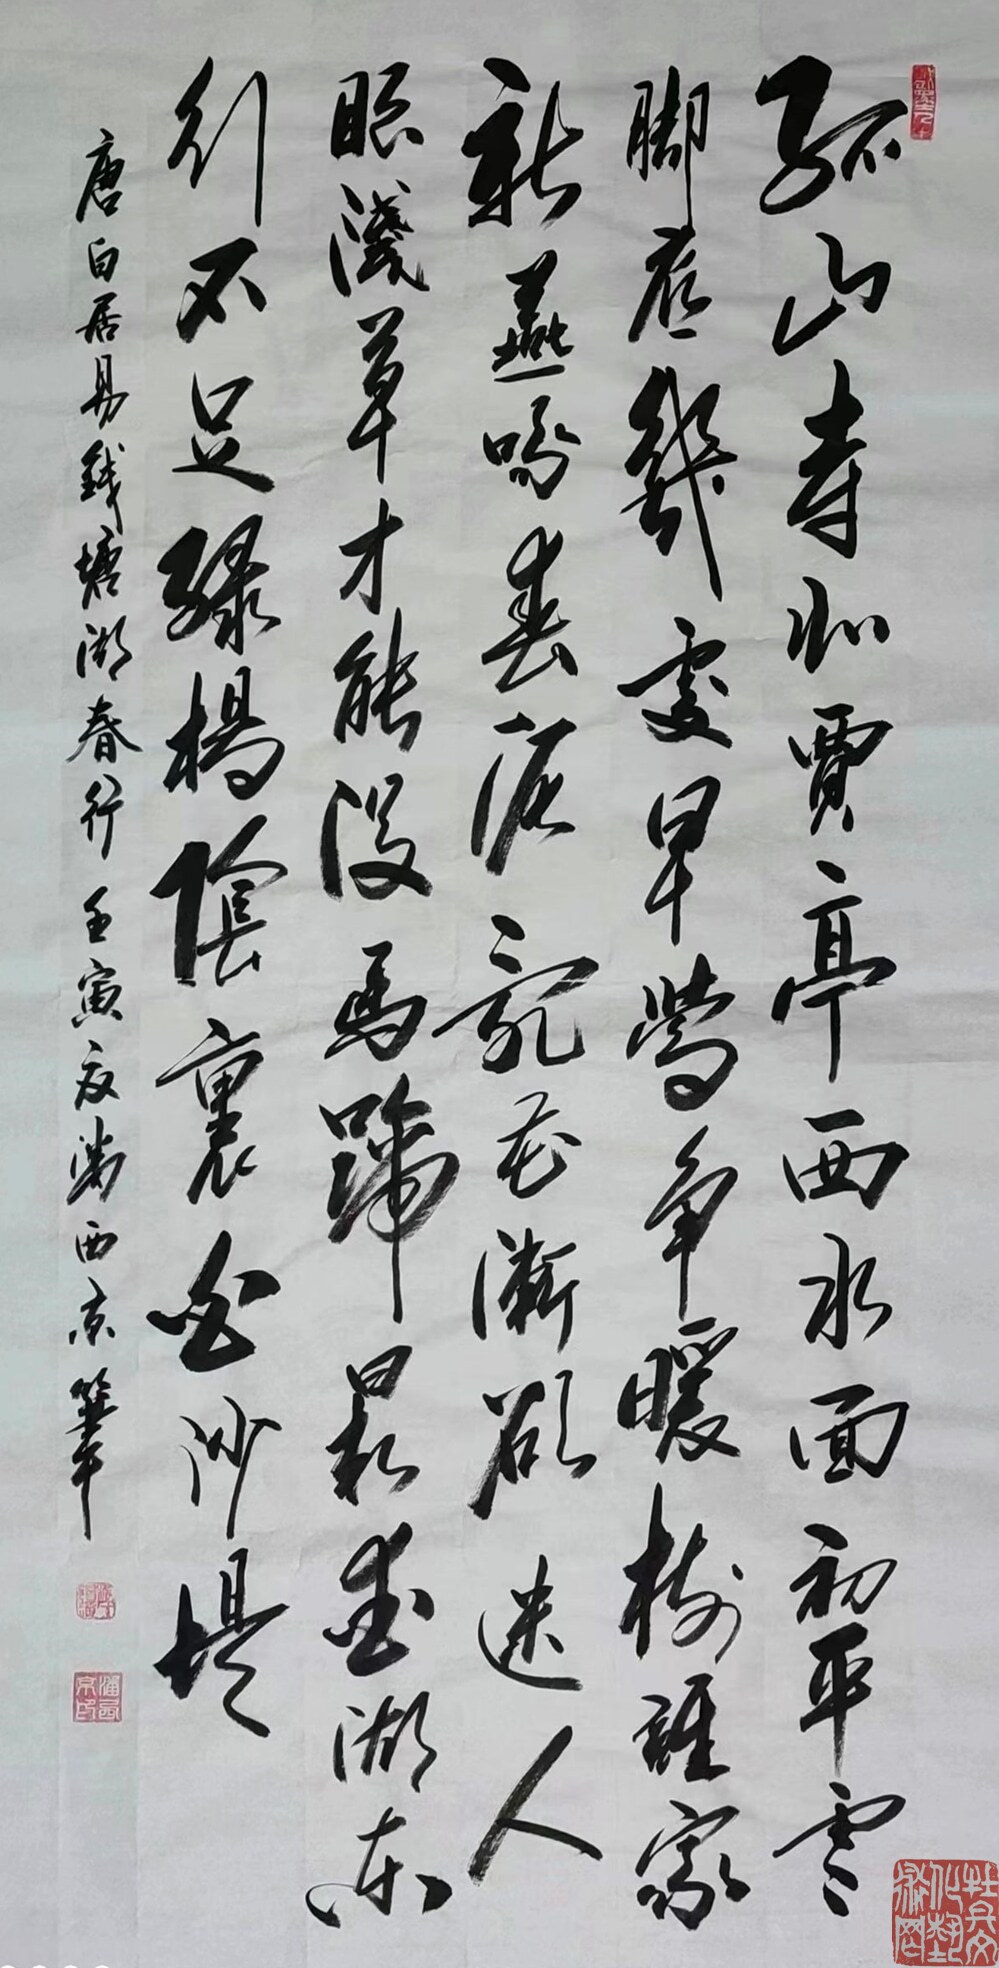 孤山寺北賈亭西水面初平雲
脚底幾處早鶯争暖樹誰家
新燕啄春泥亂花漸欲迷人
眼淺草才能没馬蹄最愛湖東
行不足綠楊陰裏白沙堤
唐白居易錢塘湖春行壬寅夏潘西京筆
潘西京印